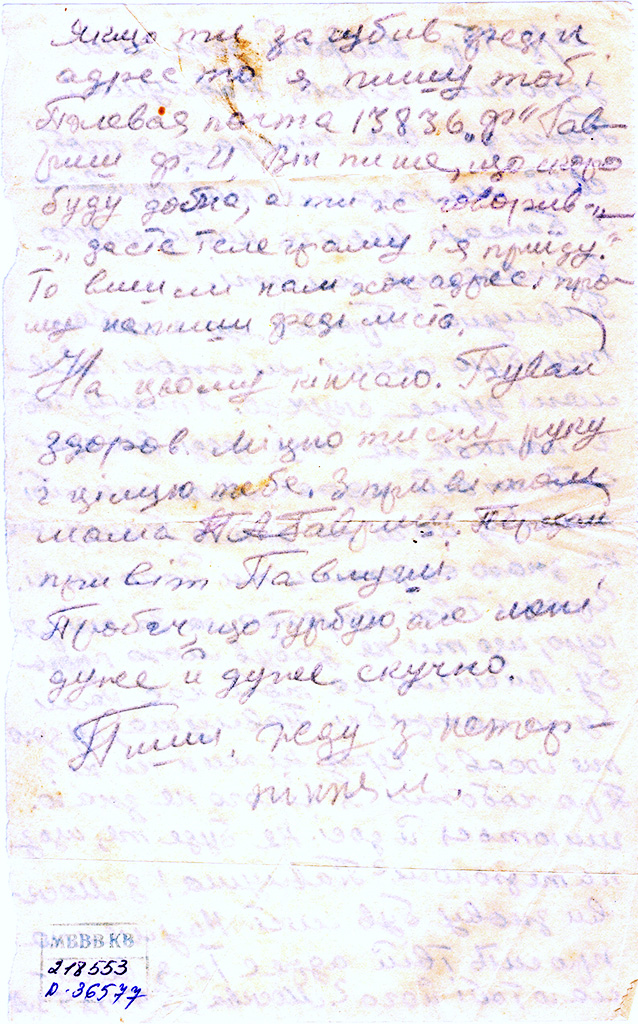 Якщо ти загубив дядін
адрес то я пишу тобі
Полевая почта 13836 „Ф" Гав-
риш Ф. И Він пише, що скоро
буду дома, а ти ж говорив-„
-„дасте телеграму і я приїду."
То вишли нам хоч адрес, і про-
шу напиши дяді листа.
На цьому кінчаю. Бувай
здоров міцно тисну руку
і цілую тебе. З привітом
мама П А Гавриш. Передай
привіт Павлуші.
Пробач, що турбую, але мені
дуже й дуже скучно.
Пиши, жду з нетер-
пінням.
МВВВ КВ
218553
Д-36577